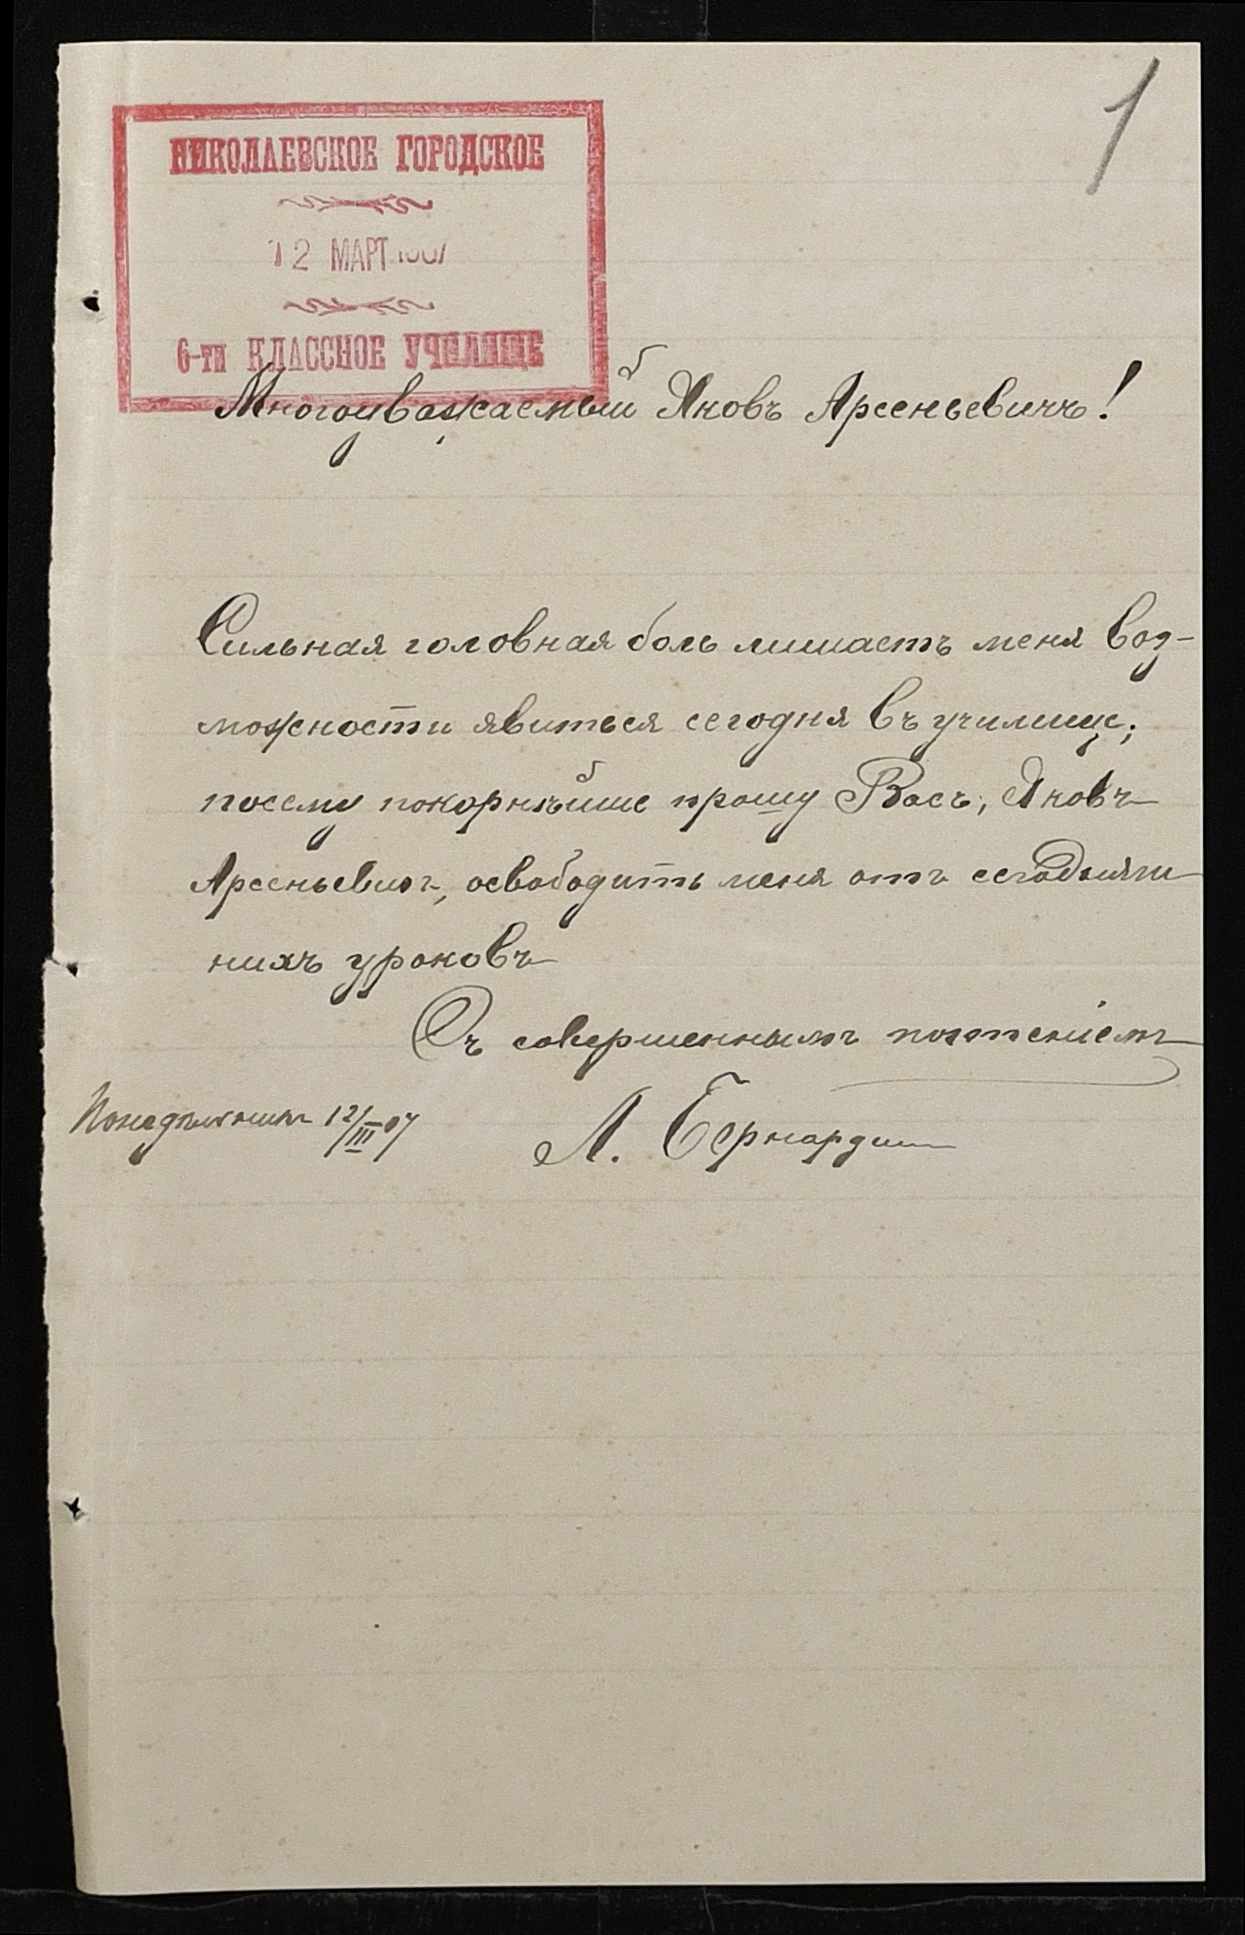 1
НИКОЛАЕВСКОЕ ГОРОДСКОЕ
12 МАРТ 1907
6-ти КЛАССНОЕ УЧИЛИЩЕ
Многоуважаемый Яковъ Арсеньевичъ!
Сильная головная боль лишаетъ меня воз-
можности явиться сегодня въ училище;
посему покорнѣйше прошу Васъ, Яковъ
Арсеньевичъ, освободить меня отъ сегодняш
нихъ уроковъ
Съ совершеннымъ почтеніемъ
Понедѣльникъ 12/III 07
Л. Бернардъ